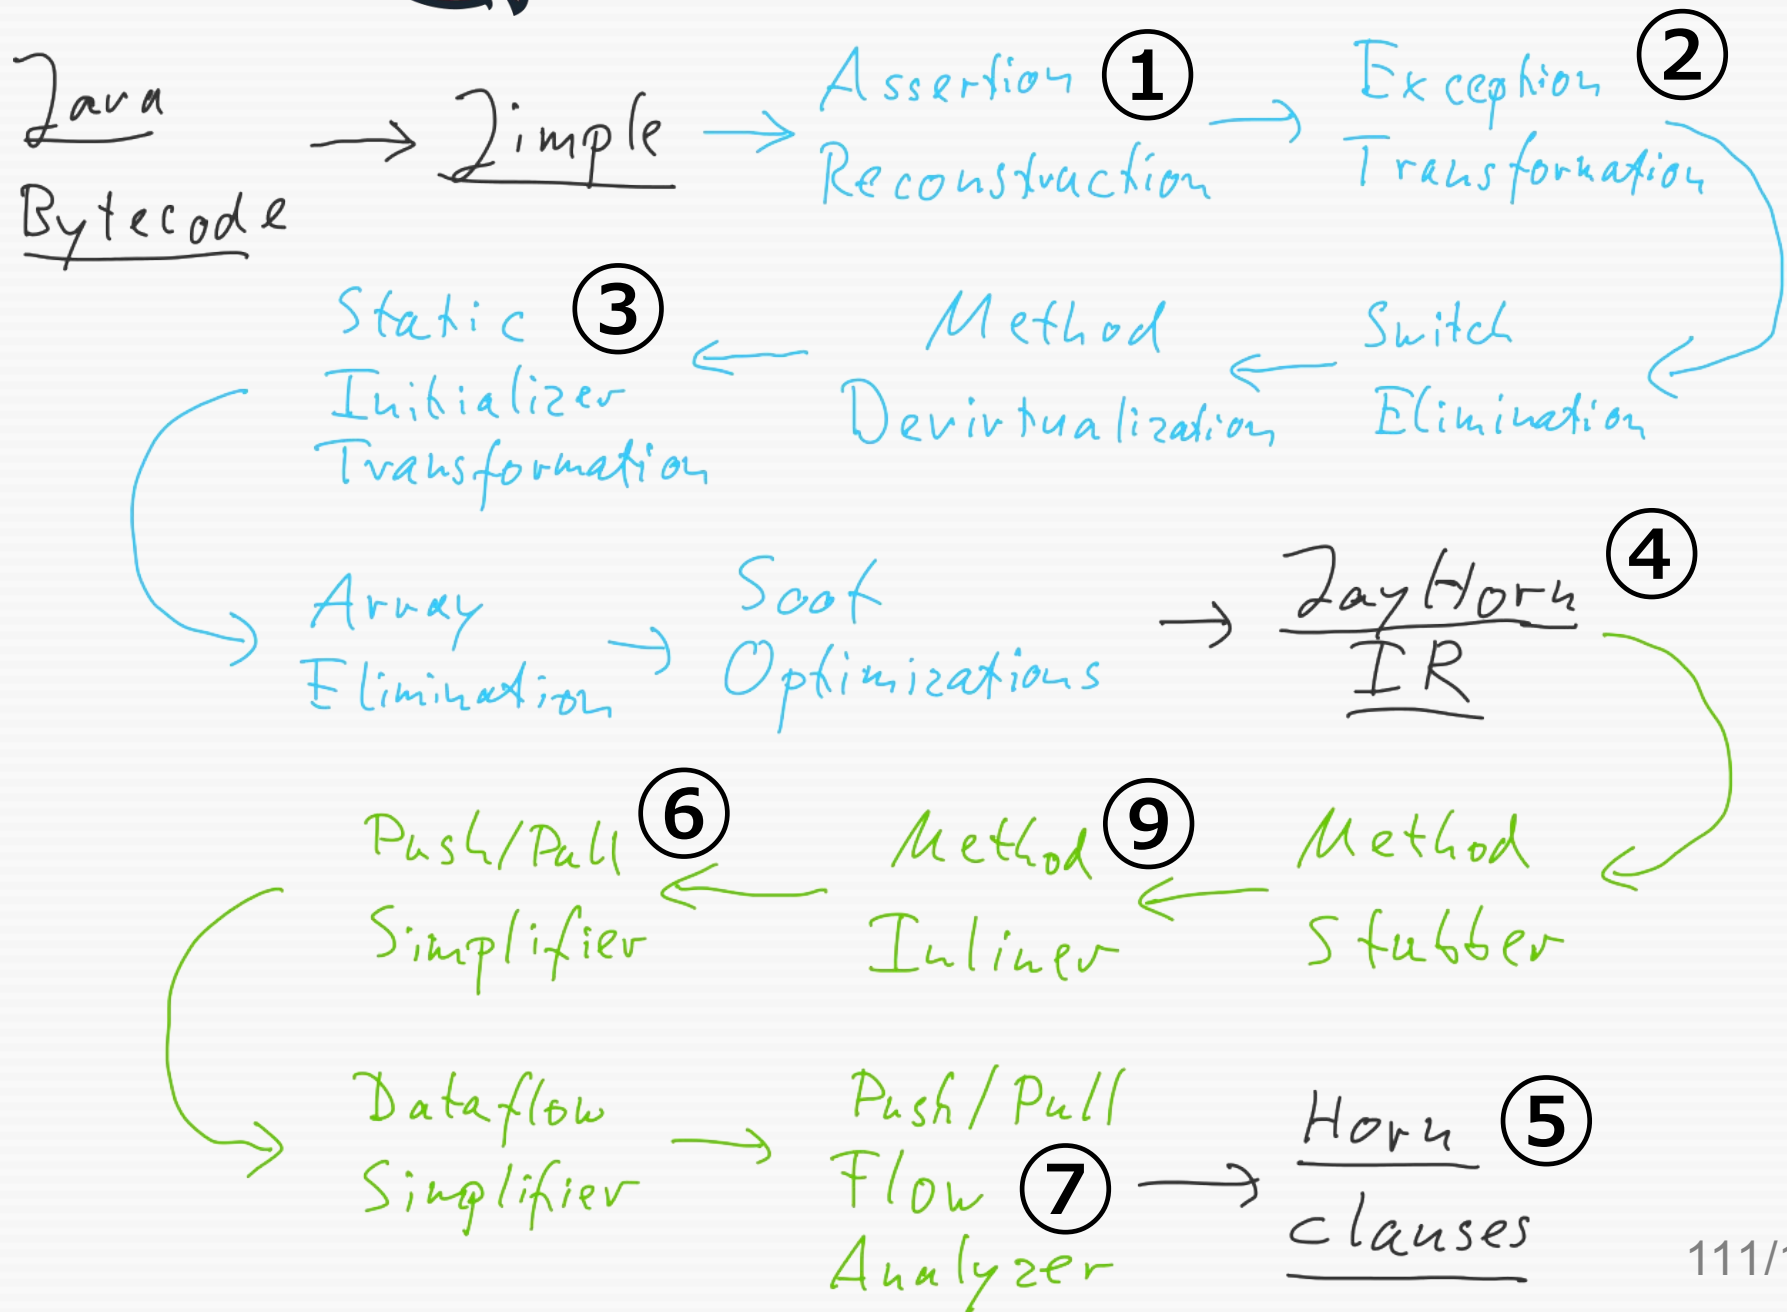 Java
Bytecode
→ Jimple →
Assertion ①
Reconstruction
→ Exception ②
Transformation
Switch
Elimination
← Method
Devirtualization
← Static ③
Initializer
Transformation
Array
Elimination
→ Soot
Optimizations
→ JayHorn ④
IR
Method
Stubber
← Method ⑨
Inliner
← Push/Pull ⑥
Simplifier
Dataflow
Simplifier
→ Push/Pull
Flow ⑦
Analyzer
→ Horn ⑤
clauses